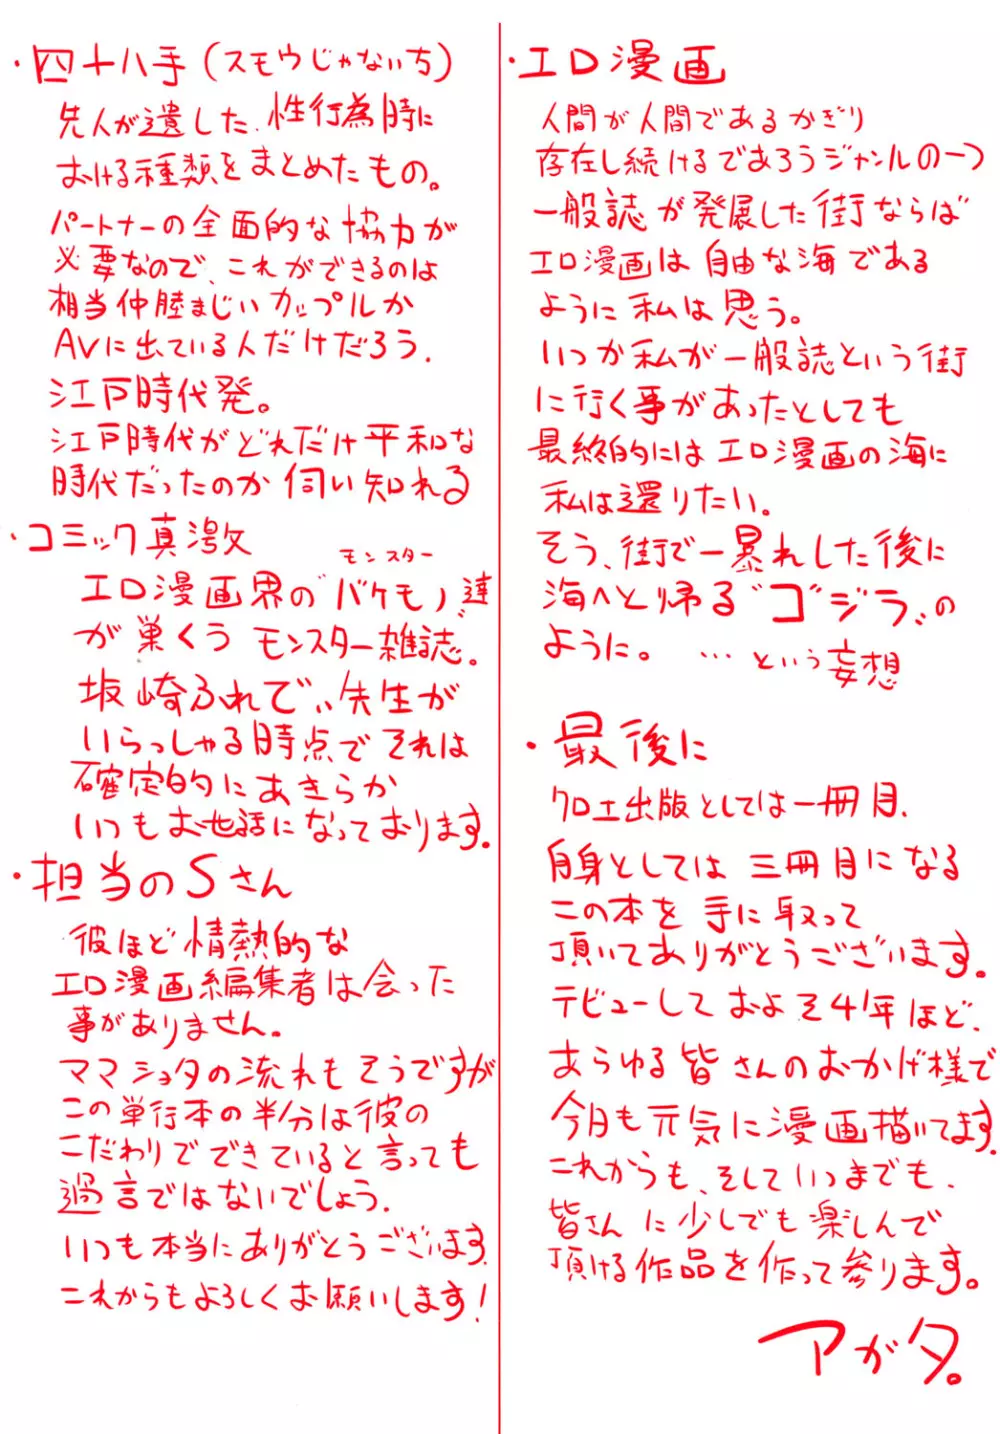 ・四十八手(スモウじゃない方)
先人が遺した、性行為時に
おける種類をまとめたもの。
パートナーの全面的な協力が
必要なので、これができるのは
相当仲睦まじいカップルか
AVに出ている人だけだろう.
江戸時代発。
江戸時代がどれだけ平和な
時代だったのか伺い知れる
・コミック真激
モンスター
エロ漫画界の"バケモノ達"
が巣くう モンスター雑誌。
坂崎ふれでぃ先生が
いらっしゃる時点でそれは
確定的にあきらか
いつもお世話になっております。
・担当のSさん
彼ほど情熱的な
エロ漫画編集者は会った
事がありません。
ママショタの流れもそうですが
この単行本の半分は彼の
こだわりでできていると言っても
過言ではないでしょう.
いつも本当にありがとうございます.
これからもよろしくお願いします!
・エロ漫画
人間が人間であるかぎり
存在し続けるであろうジャンルの一つ
一般誌が発展した街ならば
エロ漫画は自由な海である
ように私は思う。
いつか私が一般誌という街
に行く事があったとしても
最終的にはエロ漫画の海に
私は還りたい。
そう、街で一暴れした後に
海へと帰る"ゴジラ"の
ように。 …という妄想
・最後に
クロエ出版としては一冊目.
自身としては三冊目になる
この本を手に取って
頂いてありがとうございます。
デビューしておよそ4年ほど、
あらゆる皆さんのおかげ様で
今月も元気に漫画描いてます.
これからも、そしていつまでも、
皆さんに少しでも楽しんで
頂ける作品を作って参ります。
アガタ。